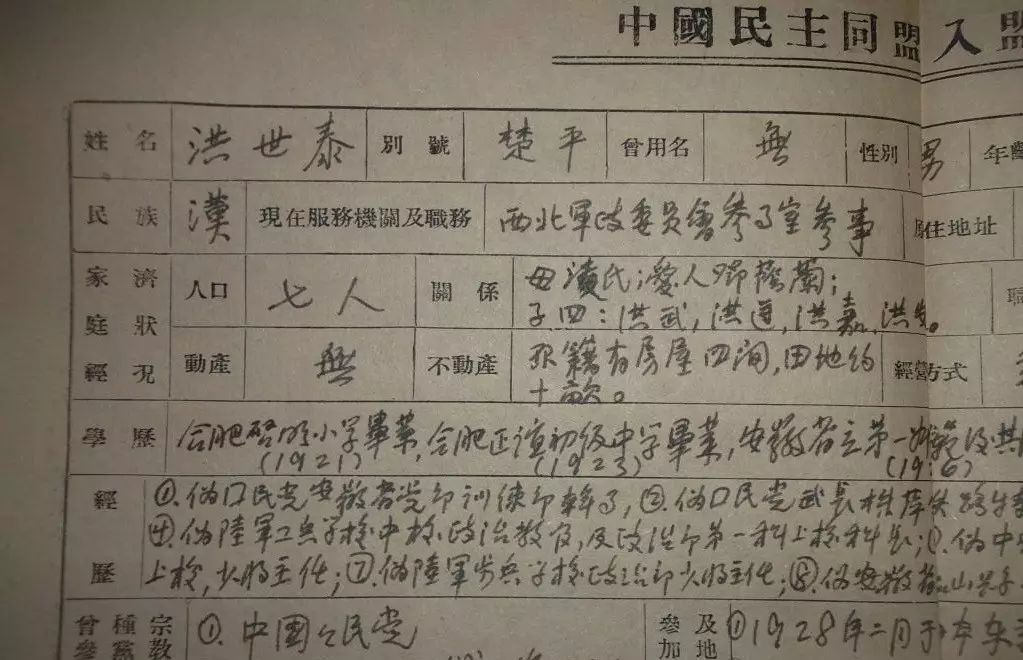 中國民主同盟入盟
姓名 洪世泰 別號 楚平 曾用名 無 性別 男 年齡
民族 漢 現在服務機關及職務 西北軍政委員會參事室參事 居住地址
家庭經濟狀況 人口 七人 關係 母 氏;愛人鄧 蘭;
子四:洪武,洪道,洪嘉,洪 。 職
動產 無 不動產 原籍有房屋四間,田地約 經營方式
十畝。
學歷 合肥啓明小学畢業,合肥正誼初級中学畢業,安徽省立第一師範及
(1921) (1923) (1926)
經歷 ①.偽国民党安徽省党部訓練部幹事,②.偽国民党武長株萍鉄路特
④.偽陸軍工兵学校中校政治教官,及政治部第一科上校科長; .偽中
上校,少将主任;⑦.偽陸軍步兵学校政治部少将主任;⑧.偽安徽 山
曾參 種黨 宗教 ①.中国国民党 參加 及地 ①1928年二月于